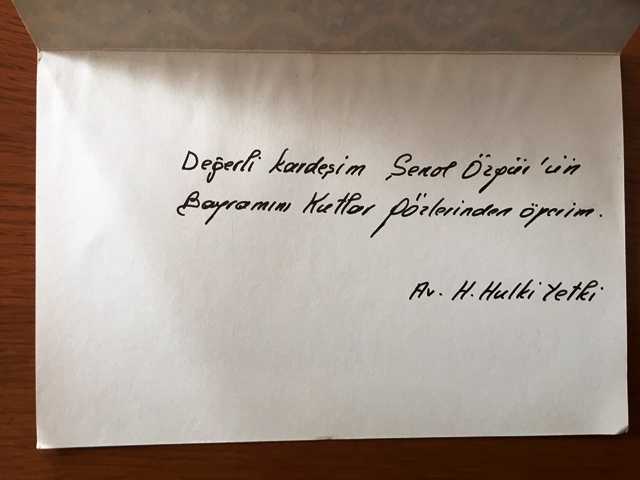 Değerli kardeşim Şenol Özgür'ün
Bayramını Kutlar Gözlerinden öperim.
Av. H. Hulki Yetki